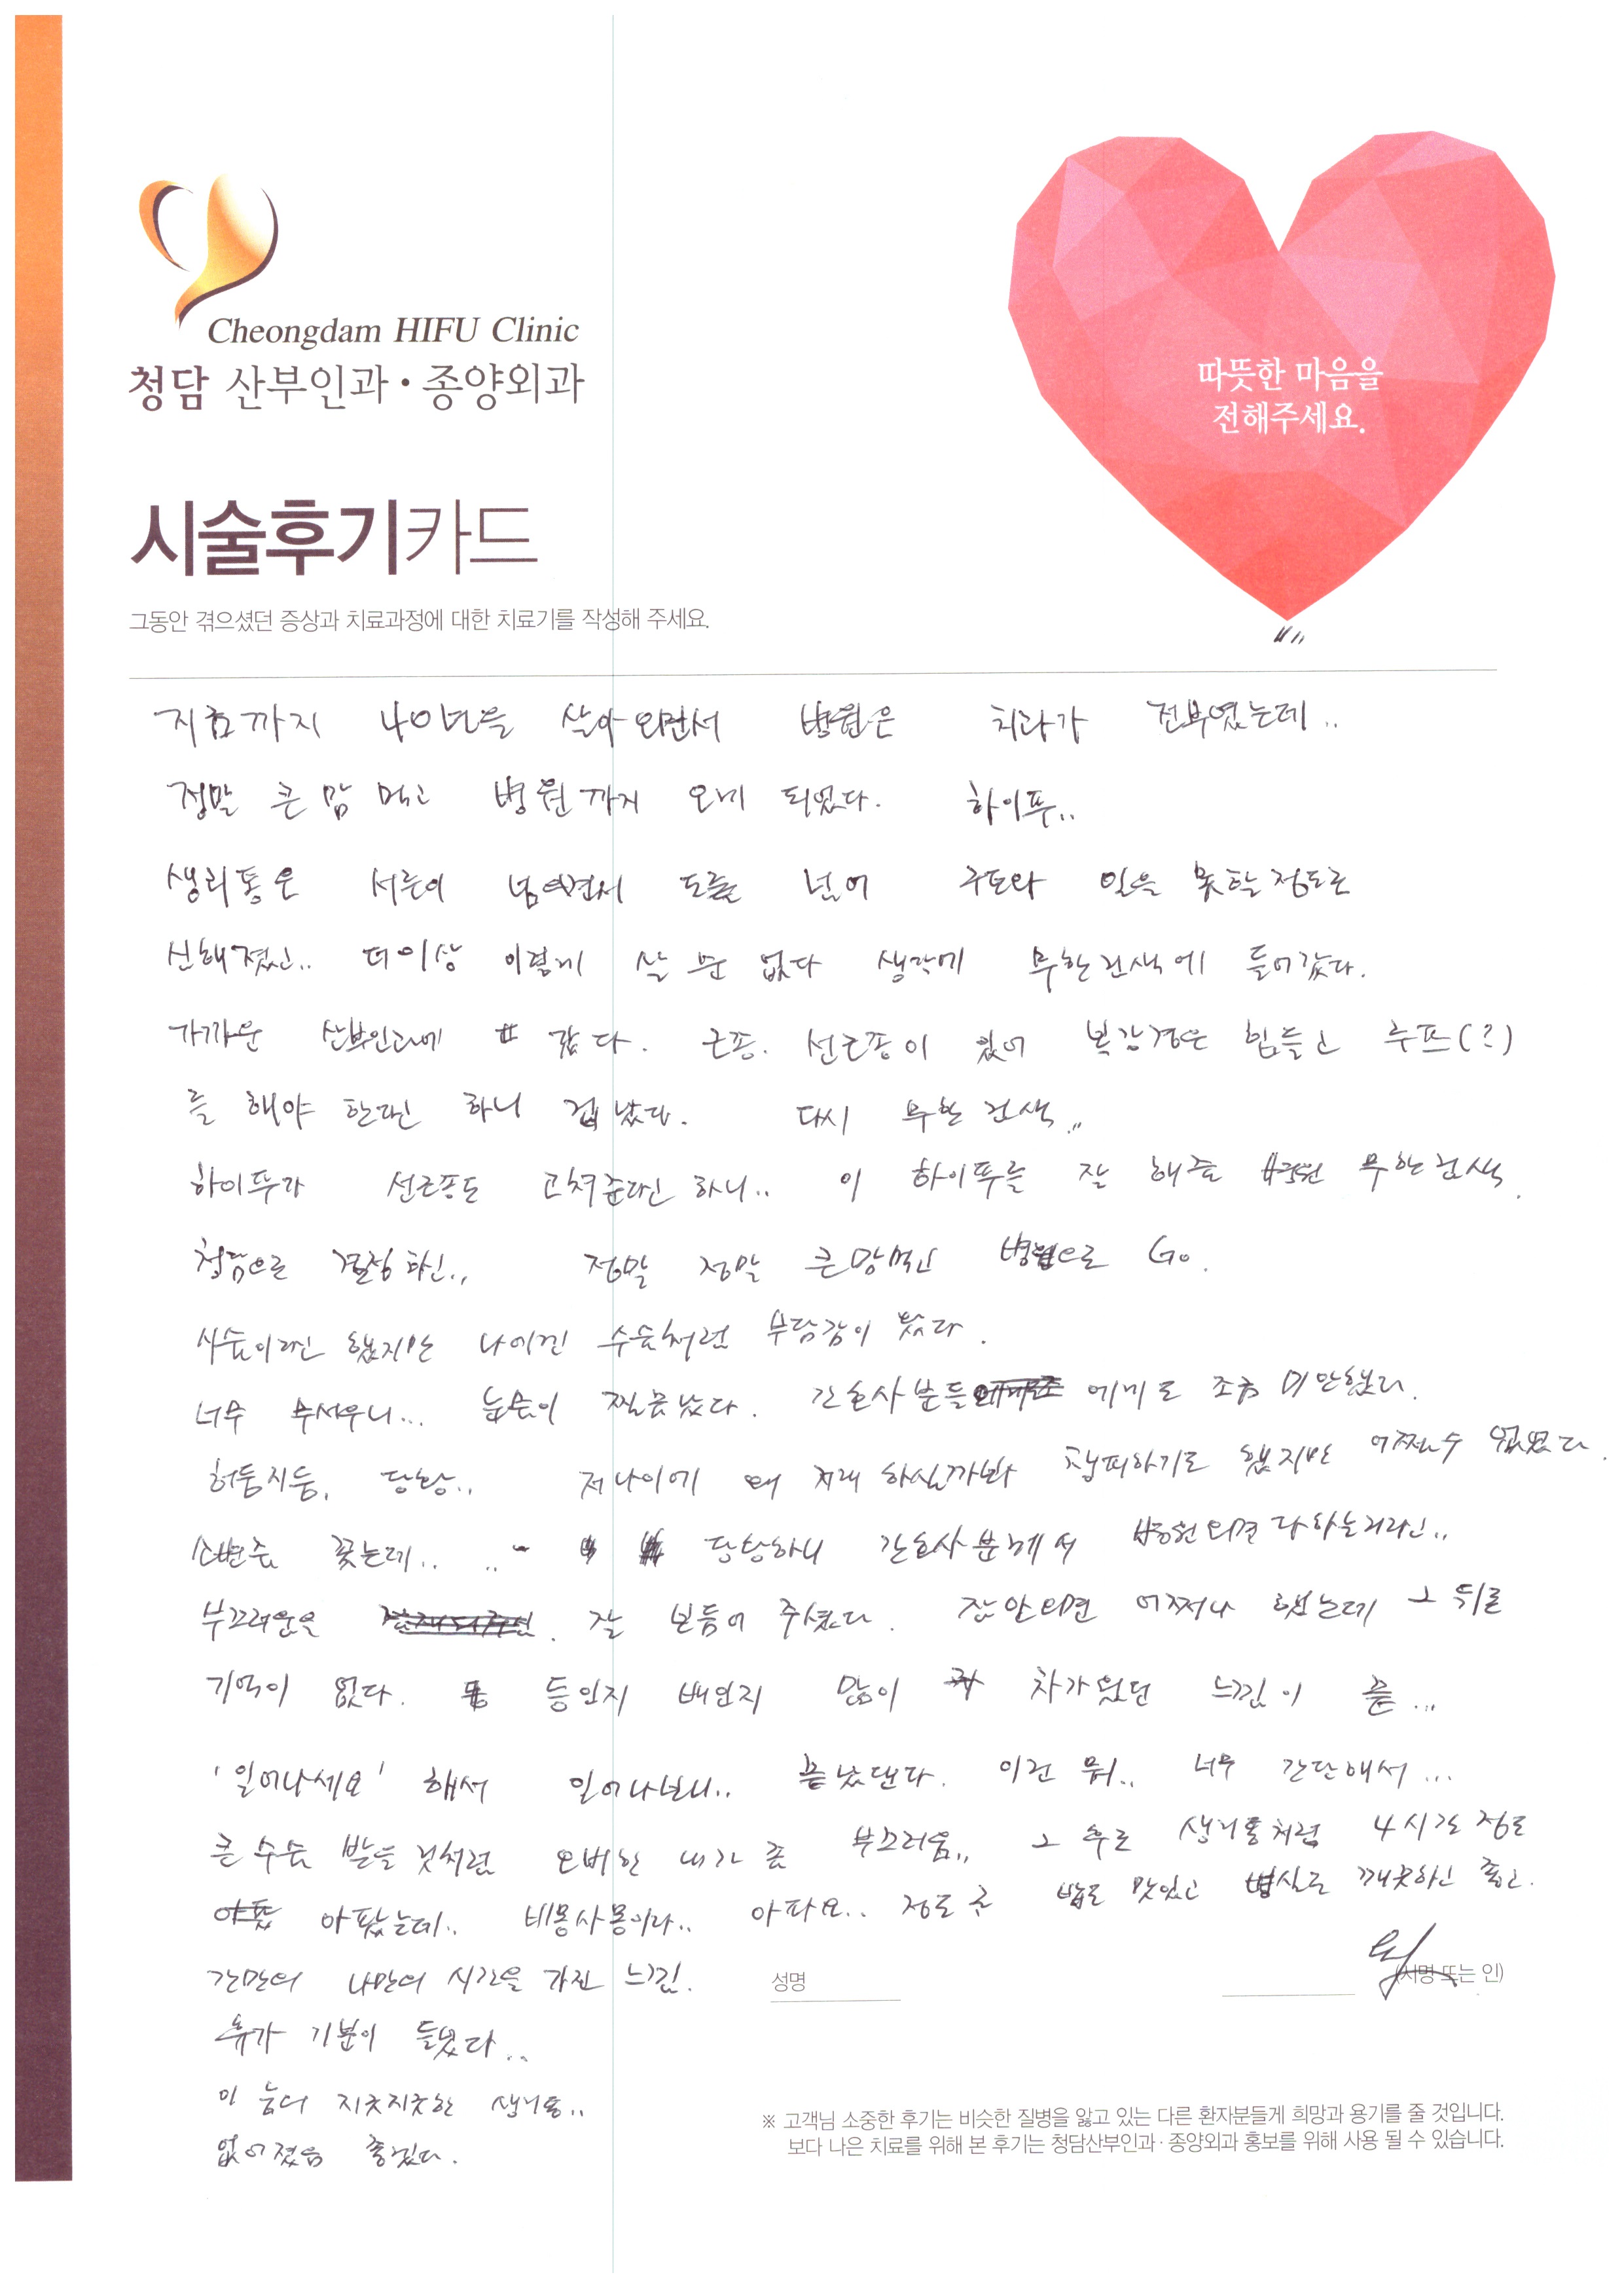 Cheongdam HIFU Clinic
청담 산부인과·종양외과
따뜻한 마음을
전해주세요.
시술후기카드
그동안 겪으셨던 증상과 치료과정에 대한 치료기를 작성해 주세요.
지금까지 40년을 살아오면서 병원은 치과가 전부였는데..
정말 큰 맘 먹고 병원까지 오게 되었다. 하이푸..
생리통은 서른이 넘어면서 도를 넘어 구토와 일을 못할정도로
심해졌고.. 더이상 이렇게 살 순 없다 생각에 무한검색에 들어갔다.
가까운 산부인과에 갔다. 근종. 선근종이 있어 복강경은 힘들고 루프(?)
를 해야 한다고 하니 겁났다. 다시 무한 검색..
하이푸가 선근종도 고쳐준다고 하니.. 이 하이푸를 잘 해줄 병원 무한검색.
청담으로 결정하고.. 정말 정말 큰맘먹고 병원으로 Go.
시술이라고 했지만 나에겐 수술처럼 부담감이 왔다.
너무 무서우니... 눈물이 찔끔났다. 간호사분들에게도 조금 미안했다.
허둥지둥, 당황.. 저나이에 왜 저래 하실까봐 창피하기도 했지만 어쩔수 없었다.
소변줄 꽂는데.. .. 당황하니 간호사분께서 병원오면 다하는거라고..
부끄러움을 잘 보듬어 주셨다. 잠안오면 어쩌나 했는데 그 뒤로
기억이 없다. 등인지 배인지 많이 차가웠던 느낌이 끝...
'일어나세요' 해서 일어나보니.. 끝났댄다. 이건 뭐.. 너무 간단해서...
큰 수술 받을 것처럼 오버한 내가 좀 부끄러움.. 그 후로 생리통처럼 4시간 정도
아팠는데.. 비몽사몽이라.. 아파요.. 정도로 밥도 맛있고 병실도 깨끗하고 좋고.
간만에 나만의 시간을 가진 느낌.
휴가 기분이 들었다..
이 놈의 지긋지긋한 생리통..
없어졌음 좋겠다.
성명
(서명 또는 인)
※ 고객님 소중한 후기는 비슷한 질병을 앓고 있는 다른 환자분들께 희망과 용기를 줄 것입니다.
보다 나은 치료를 위해 본 후기는 청담산부인과·종양외과 홍보를 위해 사용 될 수 있습니다.